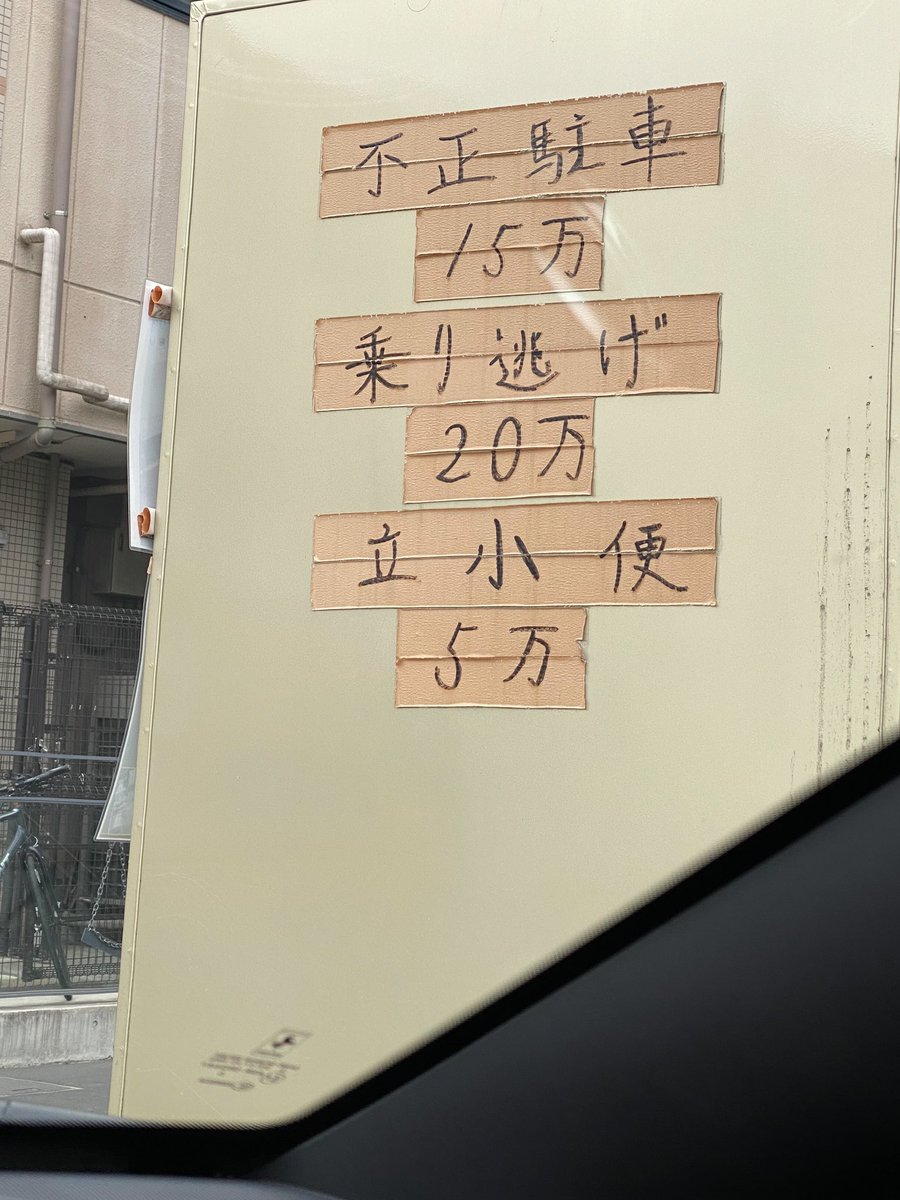 不正駐車
15万
乗り逃げ
20万
立小便
5万